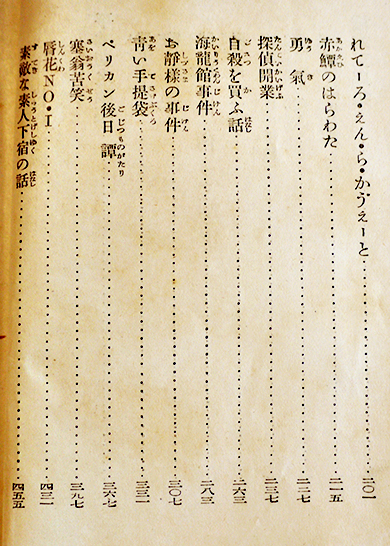 れてーろ・えん・ら・かうえーと 二〇一
赤鱏のはらわた 二一五
勇氣 二二七
探偵開業 二三七
自殺を買ふ話 二六三
海龍館事件 二八三
お靜樣の事件 三〇七
靑い手提袋 三三一
ペリカン後日譚 三六七
塞翁苦笑 三九七
唇花NO・I 四三一
素敵な素人下宿の話 四五五